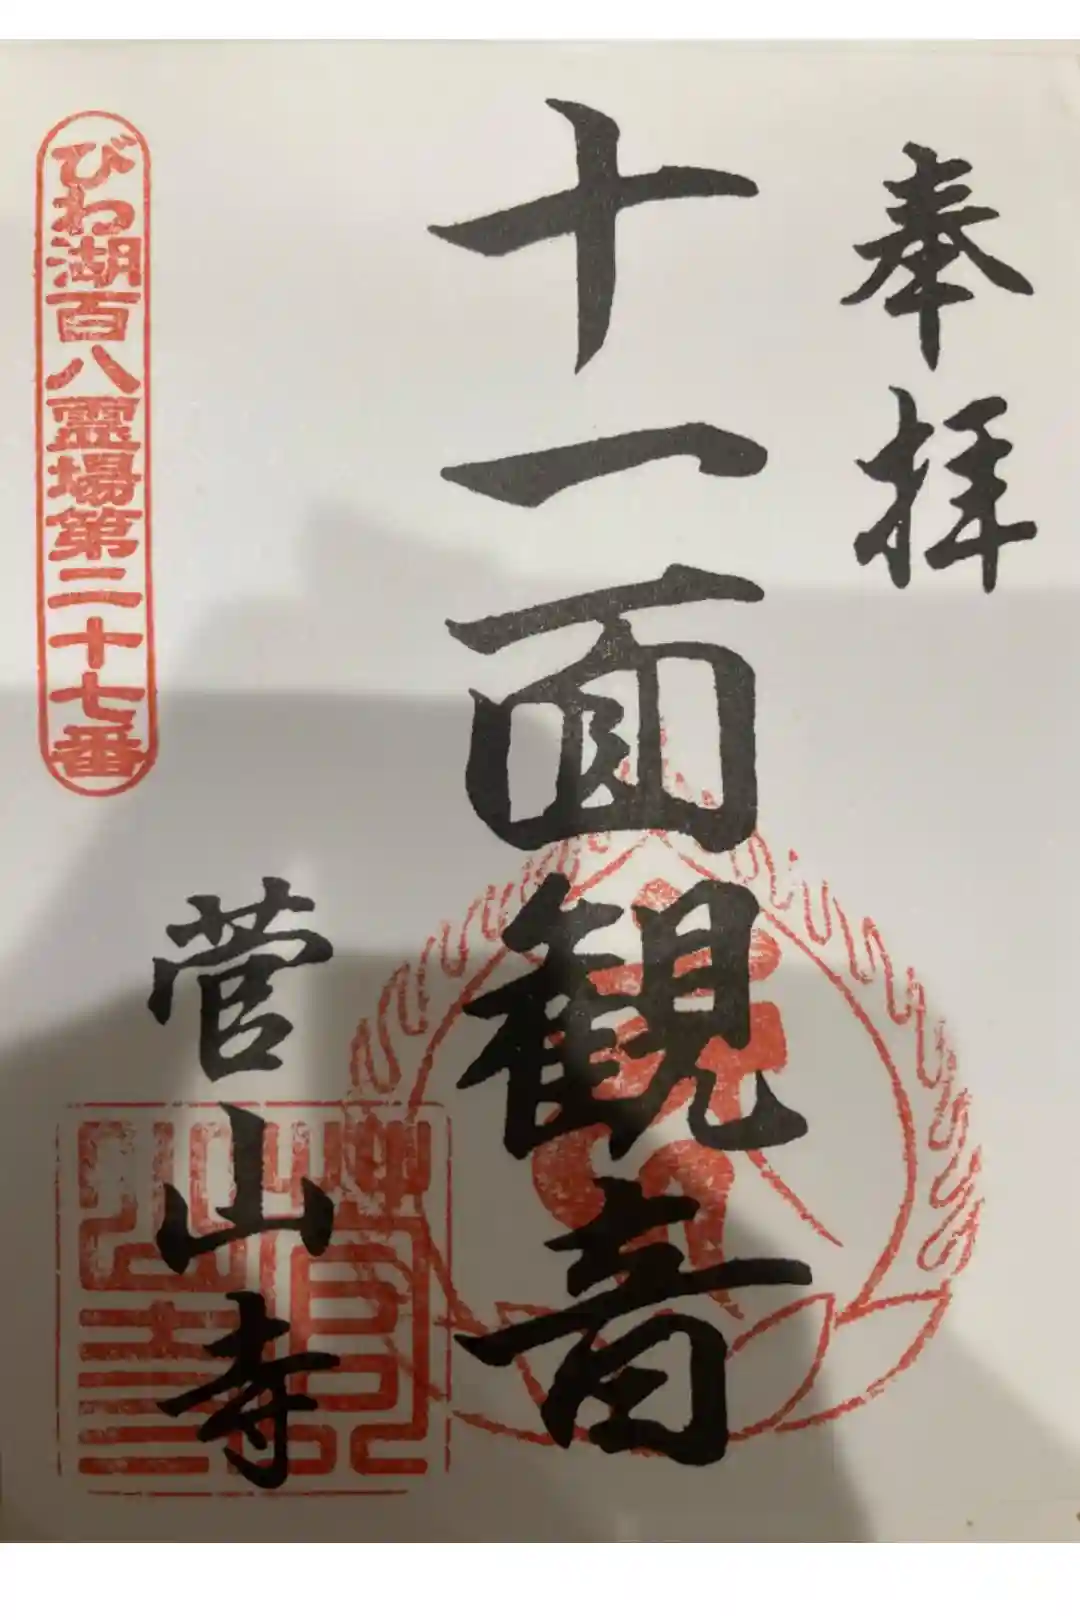 奉拝
十一面観音
菅山寺
びわ湖百八霊場第二十七番
菅山寺